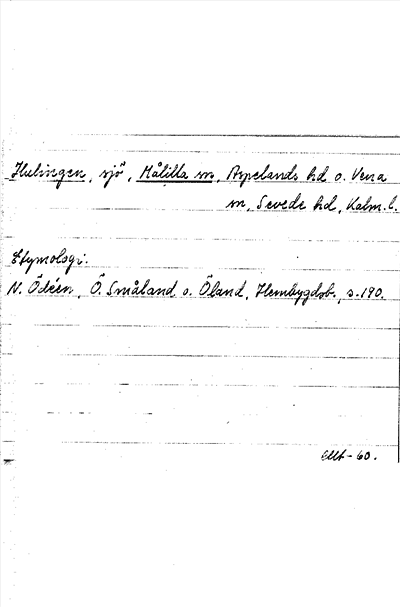 Hulingen, sjö, Målilla sn, Aspelands hd o. Vena
sn, Sevede hd, Kalm. l.
Etymologi:
N. Ödéen, Ö. Småland o. Öland, Hembygdsb., s. 190.
-60.